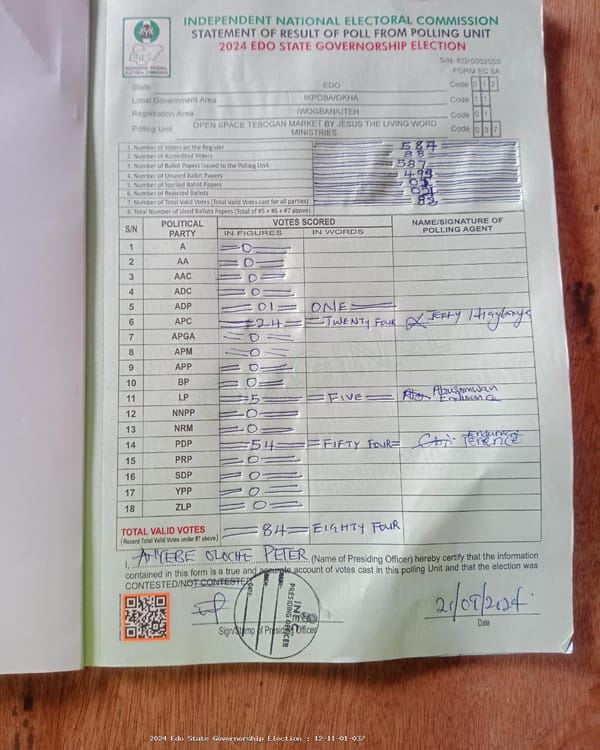 INDEPENDENT NATIONAL ELECTORAL COMMISSION
STATEMENT OF RESULT OF POLL FROM POLLING UNIT
2024 EDO STATE GOVERNORSHIP ELECTION
S/N. EG/0002050
FORM EC 8A
State EDO Code 0 1 2
Local Government Area IKPOBA/OKHA Code 1 1
Registration Area IWOGBAN/UTEH Code 0 1
Polling Unit OPEN SPACE TEBOGAN MARKET BY JESUS THE LIVING WORD MINISTRIES. Code 0 3 7
1. Number of Voters on the Register 584
2. Number of Accredited Voters 88
3. Number of Ballot Papers Issued to the Polling Unit 587
4. Number of Unused Ballot Papers
5. Number of Spoiled Ballot Papers
6. Number of Rejected Ballots
7. Number of Total Valid Votes (Total Valid Votes cast for all parties)
8. Total Number of Used Ballots Papers (Total of #5 + #6 + #7 above)
S/N POLITICAL PARTY VOTES SCORED NAME/SIGNATURE OF POLLING AGENT
IN FIGURES IN WORDS
1 A 0
2 AA 0
3 AAC 0
4 ADC 0
5 ADP 01 ONE
6 APC 24 TWENTY FOUR JERRY
7 APGA 0
8 APM 0
9 APP 0
10 BP 0
11 LP 5 FIVE
12 NNPP 0
13 NRM 0
14 PDP 54 FIFTY FOUR TERENCE
15 PRP 0
16 SDP 0
17 YPP 0
18 ZLP 0
TOTAL VALID VOTES 84 EIGHTY FOUR
(Record Total Valid Votes under #7 above)
I, OLOCHE PETER (Name of Presiding Officer) hereby certify that the information
contained in this form is a true and accurate account of votes cast in this polling Unit and that the election was
CONTESTED/NOT CONTESTED
INEC
PRESIDING OFFICER
21/09/2024
Sign/Stamp of Presiding Officer
Date
2024 Edo State Governorship Election : 12-11-01-037